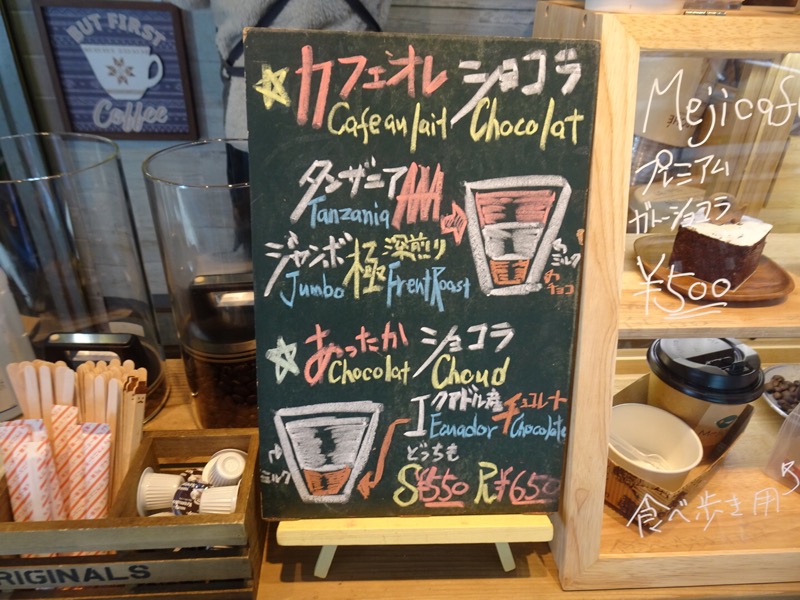 BUT FIRST
Coffee
カフェオレ ショコラ
Cafe au lait Chocolat
タンザニア AAA
Tanzania
ジャンボ 極 深煎り
Jumbo Frent Roast
ミルク
チョコ
あったか ショコラ
Chocolat Choud
エクアドル産 チョコレート
Ecuador Chocolate
どっちも
ミルク
S ¥550 R ¥650
Mejicaf
プレミアム
ガトーショコラ
¥500
食べ歩き用
RIGINALS